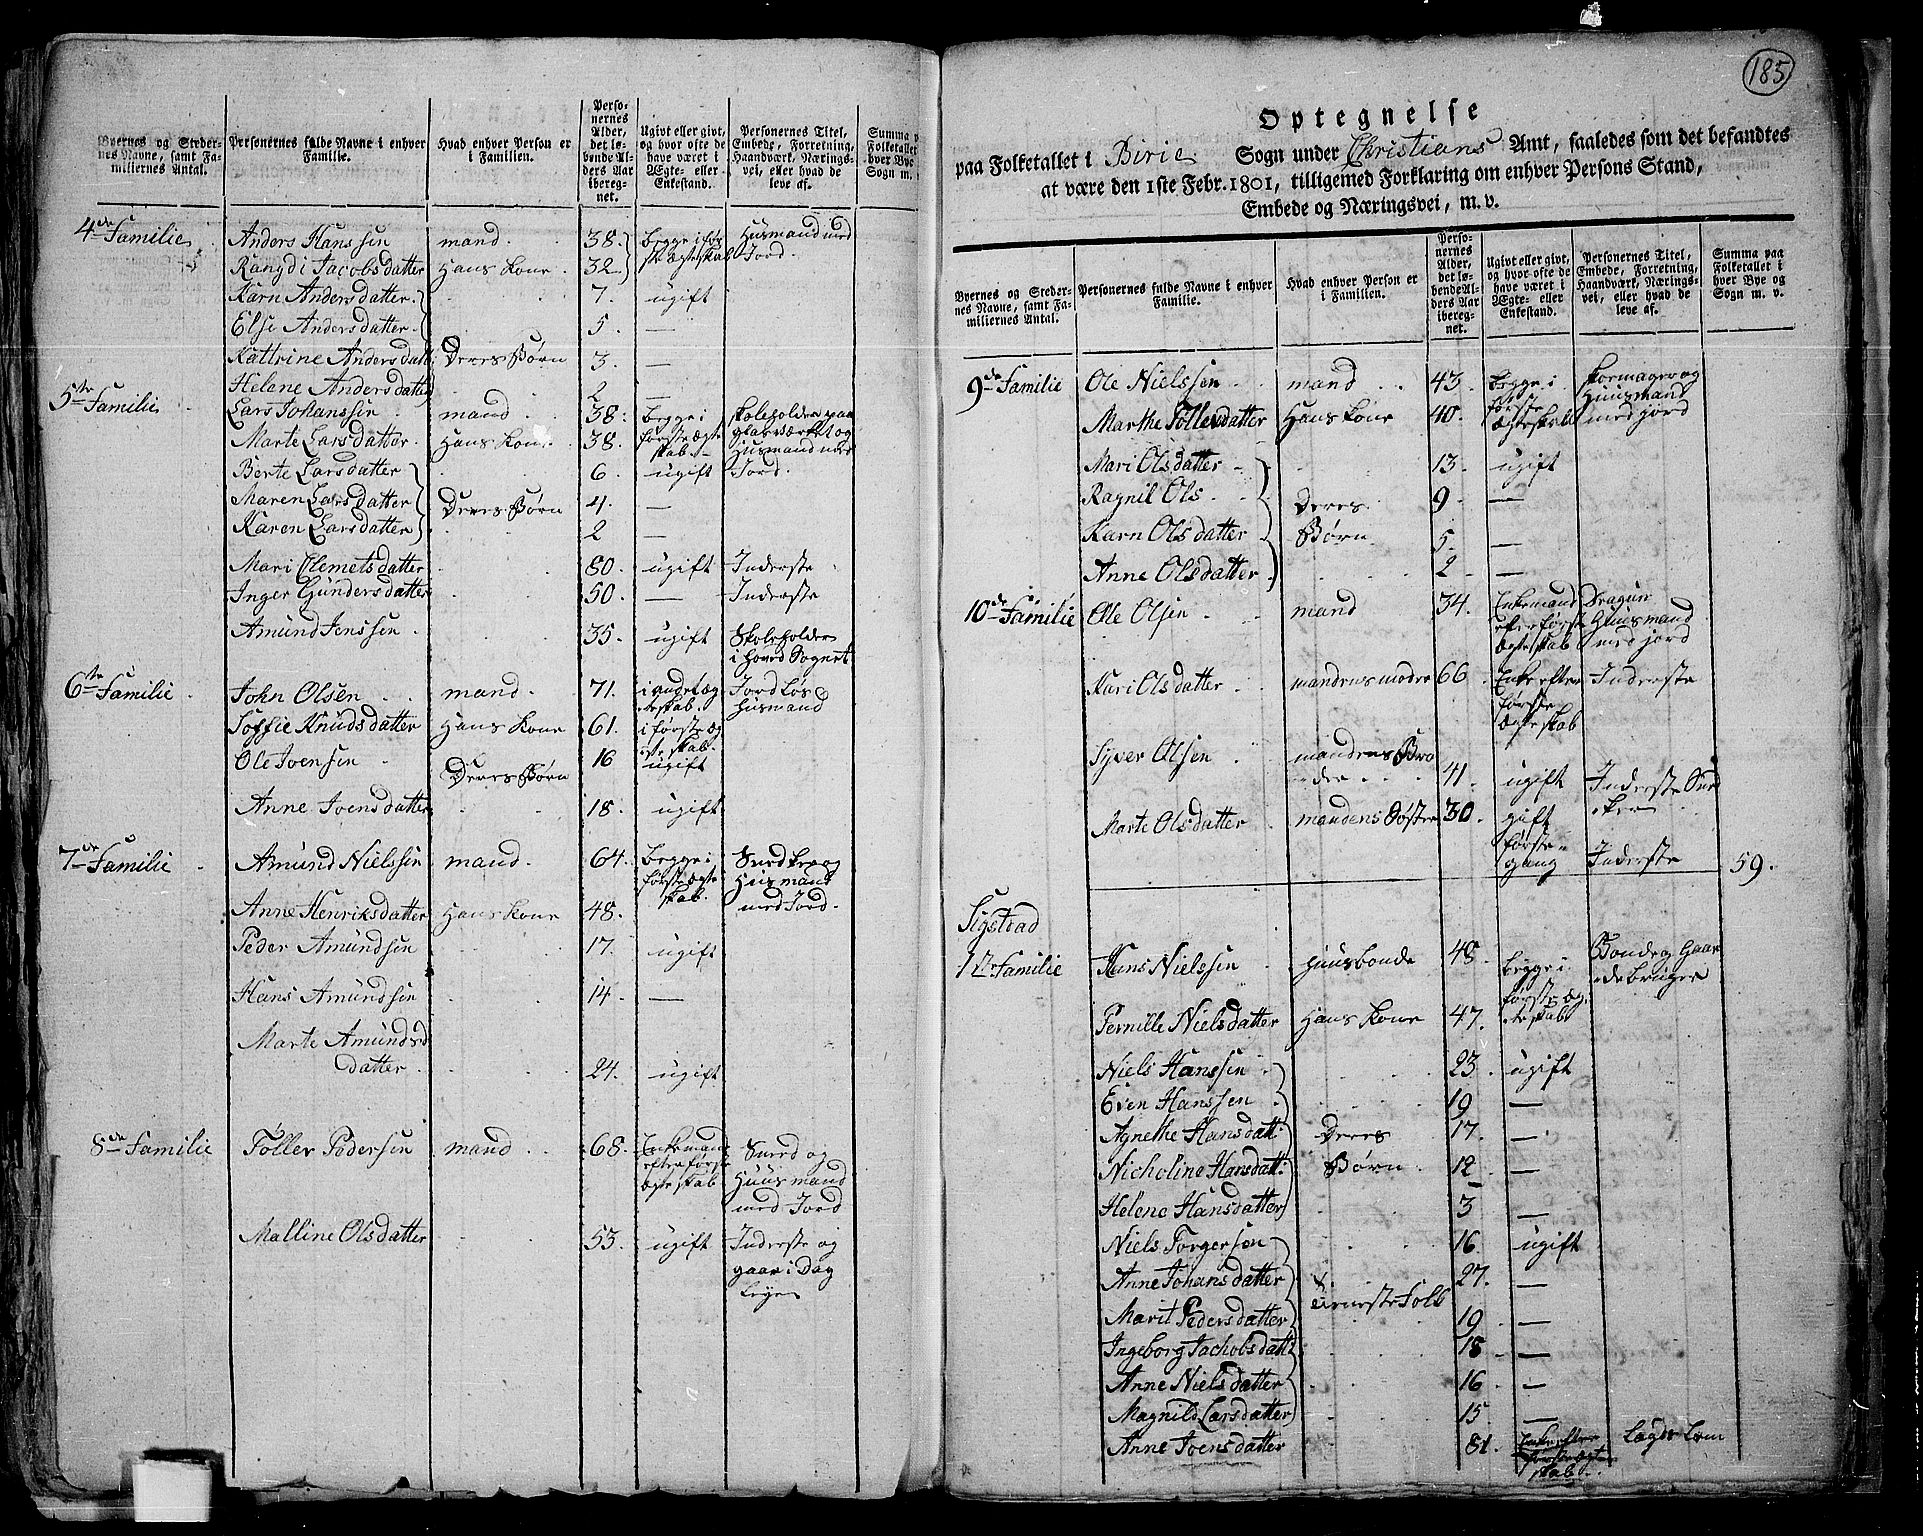 Byernes og Steder-
nes Navne, samt Fa-
miliernes Antal.
Personernes fulde Navne i enhver
Familie.
Hvad enhver Person er
i Familien.
Perso-
nernes
Alder,
det lø-
bende Al-
ders Aar
ibereg-
net.
Ugivt eller givt,
og hvor ofte de
have været i
Ægte- eller
Enkestand.
Personernes Titel,
Embede, Forretning,
Haandværk, Nærings-
vei, eller hvad de
leve af.
Summa p
Folketallet
hver Bye
Sogn m.
4de Familie Anders Hanssen mand 38. begge i før Husmand med
Rangdi Jacobsdatter Hans Kone 32 ste Ægteskab Jord.
Karn Andersdatter 7. ugift
Else Andersdatter 5. —
Kattrine Andersdatt: Deres Børn 3 —
Helene Andersdatter 2 —
5te Familie Lars Johanssen mand 38. begge i Skoleholder paa
Marte Larsdatter Hans Kone 38. første ægte glasværket og
skab. Husmand med
Berte Larsdatter 6 ugift Jord.
Maren Larsdatter Deres Børn 4. —
Karen Larsdatter 2 —
Mari Clemetsdatter 80. ugift Inderste
Inger Gundersdatter 50. — Inderste
Amund Jenssen 35. ugift Skoleholder
i Hoved Sognet
6te Familie John Olsen mand 71. i andet æg Jordløs
teskab. Husmand
Soffie Knudsdatter Hans Kone 61. i første æg
teskab.
Ole Joensen Deres Børn 16 ugift
Anne Joensdatter 18. ugift
7de Familie Amund Nielssen mand 64. begge i Smed og
første ægte Husmand
skab. med Jord.
Anne Henriksdatter Hans Kone 48.
Peder Amundsen 17. ugift
Hans Amundsen 14. —
Marte Amundsd
datter 24. ugift
8de Familie Töller Pedersen mand 68. Enkemand Smed og
efter første Huusmand
ægteskab med Jord
Malline Olsdatter 53. ugift Inderste og
gaar i Dag
Leye
185
Optegnelse
paa Folketallet i Birie Sogn under Christians Amt, saaledes som det befandtes
at være den 1ste Febr. 1801, tilligemed Forklaring om enhver Persons Stand,
Embede og Næringsvei, m. v.
Byernes og Steder-
nes Navne, samt Fa-
miliernes Antal.
Personernes fulde Navne i enhver
Familie.
Hvad enhver Person er
i Familien.
Perso-
nernes
Alder,
det lø-
bende Al-
ders Aar
ibereg-
net.
Ugivt eller givt,
og hvor ofte de
have været i
Ægte- eller
Enkestand.
Personernes Titel,
Embede, Forretning,
Haandværk, Nærings-
vei, eller hvad de
leve af.
Summa paa
Folketallet i
hver Bye og
Sogn m. v.
9de Familie Ole Nielssen mand 43. begge i Skormager og
første Huusmand
Marthe Töllersdatter Hans Kone 40. ægteskab med jord
Mari Olsdatter 13. ugift
Ragnil Ols Deres 9. —
Karn Olsdatter Børn 5. —
Anne Olsdatter 2. —
10de Familie Ole Olsen mand 34. Enkemand Dragun
efter første Huusmand
ægteskab med jord
Kari Olsdatter mandens moder 66 Enke efter Inderste
første
ægteskab
Syver Olsen mandens Bro
der 41. ugift Inderste Sned
ker
Marte Olsdatter mandens Søster 30. gift
første
gang Inderste 59.
Sigstad
1te Familie Hans Nielssen Huusbonde 48. begge i Bonde og Gaar
første æg debruger
Pernille Nielsdatter Hans Kone 47. teskab
Niels Hanssen 23. ugift
Even Hanssen 19 —
Agnethe Hansdatt: Deres 17. —
Nicholine Hansdatt: Børn 12 —
Helene Hansdatter 3 —
Niels Torgersen 16 ugift
Anne Johansdatter 27. —
tienesteFolk
Marit Pedersdatter 19 —
Ingeborg Jachobsdatt: 18 —
Anne Nielsdatter 16 —
Magnild Larsdatter 15 —
Anne Joensdatter 81. Enke efter Lægds Lem
første ægte
skab